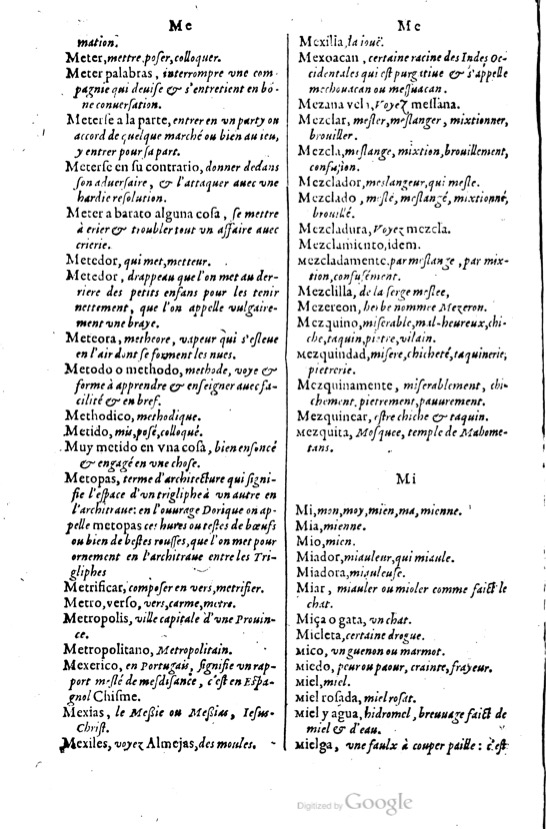 Me
mation.
Meter, mettre, poser, colloquer.
Meter palabras, interrompre vne com-
pagnie qui deuise & s'entretient en bõ-
ne conuersation.
Meterse a la parte, entrer en vn party ou
accord de quelque marché ou bien au ieu,
y entrer pour sa part.
Meterse en su contrario, donner dedans
son aduersaire, & l'attaquer auec vne
hardie resolution.
Meter a barato alguna cosa, se mettre
à crier & troubler tout vn affaire auec
crierie.
Metedor, qui met, metteur.
Metedor, drappeau que l'on met au der-
riere des petits enfans pour les tenir
nettement, que l'on appelle vulgaire-
ment vne braye.
Meteora, metheore, vapeur qui s'esleue
en l'air dont se forment les nues.
Metodo o methodo, methode, voye &
forme à apprendre & enseigner auec fa-
cilité & en bref.
Methodico, methodique.
Metido, mis, posé, colloqué.
Muy metido en vna cosa, bien enfoncé
& engagé en vne chose.
Metopas, terme d'architecture qui signi-
fie l'espace d'vn trigliphe à vn autre en
l'architraue: en l'ouurage Dorique on ap-
pelle metopas ces hures ou testes de bœufs
ou bien de bestes rousses, que l'on met pour
ornement en l'architraue entre les Tri-
gliphes
Metrificar, composer en vers, metrifier.
Metro, verso, vers, carme, metre.
Metropolis, ville capitale d'vne Prouin-
ce.
Metropolitano, Metropolitain.
Mexerico, en Portugais, signifie vn rap-
port meslé de mesdisance, c'est en Espa-
gnol Chisme.
Mexias, le Messie ou Messias, Iesus-
Christ.
Mexiles, voyez Almejas, des moules.
Me
Mexilla, la iouë.
Mexoacan, certaine racine des Indes Oc-
cidentales qui est purgatiue & s'appelle
mechouacan ou messuacan.
Mezana vela, Voyez messana.
Mezclar, mesler, meslanger, mixtionner,
brouiller.
Mezcla, meslange, mixtion, brouillement,
confusion.
Mezclador, meslangeur, qui mesle.
Mezclado, meslé, meslangé, mixtionné,
brouillé.
Mezcladura, Voyez mezcla.
Mezclamiento, idem.
Mezcladamente, par meslange, par mix-
tion, confusément.
Mezclilla, de la serge meslee,
Mezereon, herbe nommee Mezeron.
Mezquino, miserable, mal-heureux, chi-
che, taquin, pietre, vilain.
Mezquindad, misere, chicheté, taquinerie,
pietrerie.
Mezquinamente, miserablement, chi-
chement, pietrement, pauurement.
Mezquinear, estre chiche & taquin.
Mezquita, Mosquee, temple de Mahome-
tans.
Mi
Mi, mon, moy, mien, ma, mienne.
Mia, mienne.
Mio, mien.
Miador, miauleur, qui miaule.
Miadora, miauleuse.
Miar, miauler ou mioler comme faict le
chat.
Miça o gata, vn chat.
Micleta, certaine drogue.
Mico, vn guenon ou marmot.
Miedo, peur ou paour, crainte, frayeur.
Miel, miel.
Miel rosada, miel rosat.
Miel y agua, hidromel, breuuage faict de
miel & d'eau.
Mielga, vne faulx à couper paille: c'est
Digitized by Google